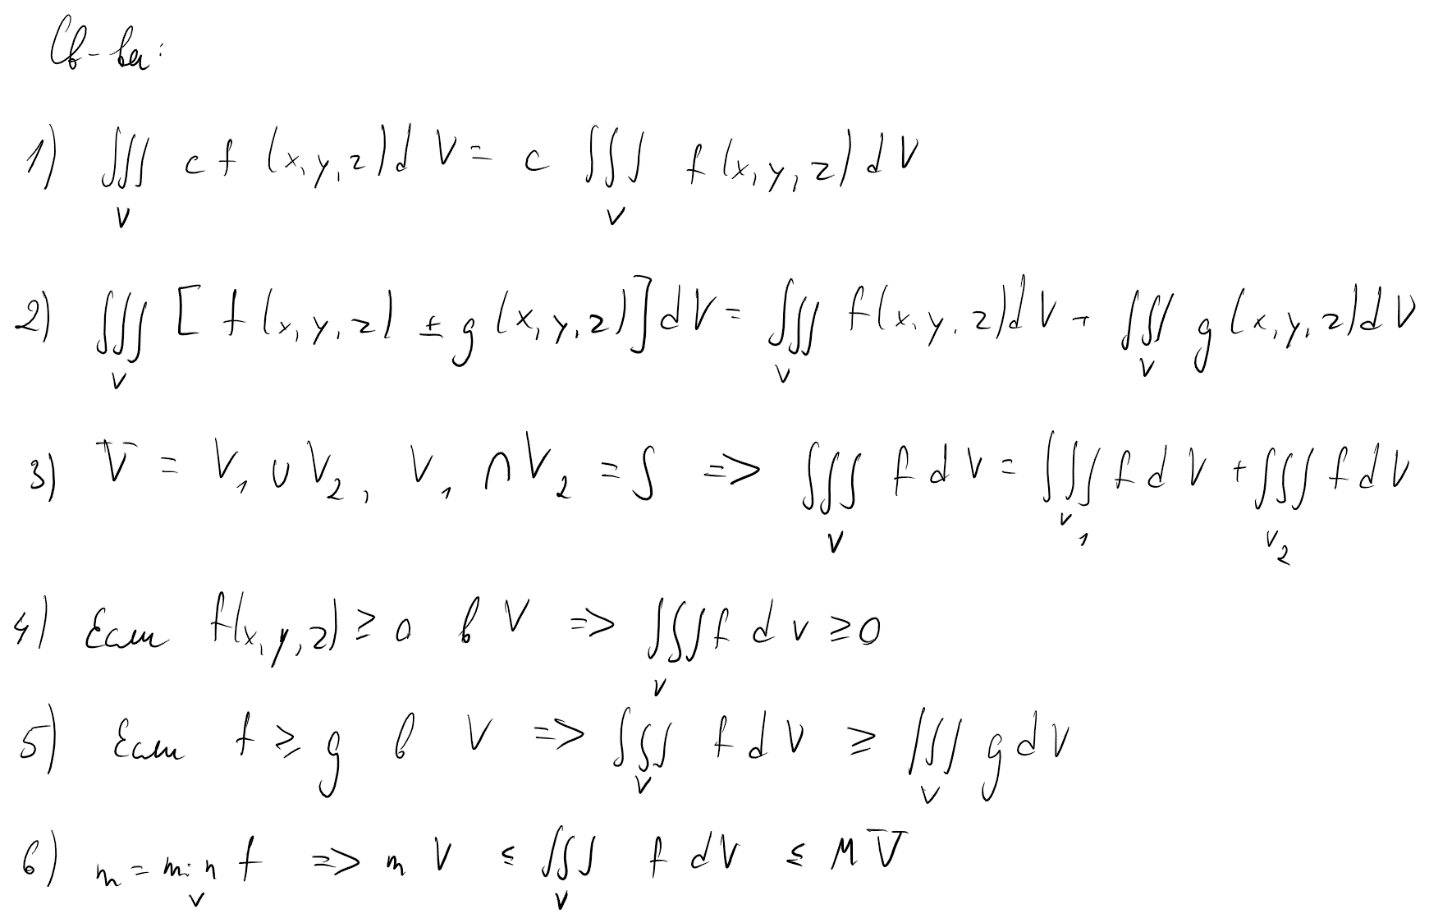 Св-ва:
1) ∭_V c f (x, y, z) d V = c ∭_V f (x, y, z) d V
2) ∭_V [ f (x, y, z) ± g (x, y, z) ] d V = ∭_V f (x, y, z) d V + ∭_V g (x, y, z) d V
3) V = V_1 ∪ V_2, V_1 ∩ V_2 = S => ∭_V f d V = ∭_{V_1} f d V + ∭_{V_2} f d V
4) Если f(x, y, z) ≥ 0 в V => ∭_V f d v ≥ 0
5) Если f ≥ g в V => ∭_V f d V ≥ ∭_V g d V
6) m = min_V f => m V ≤ ∭_V f dV ≤ M V